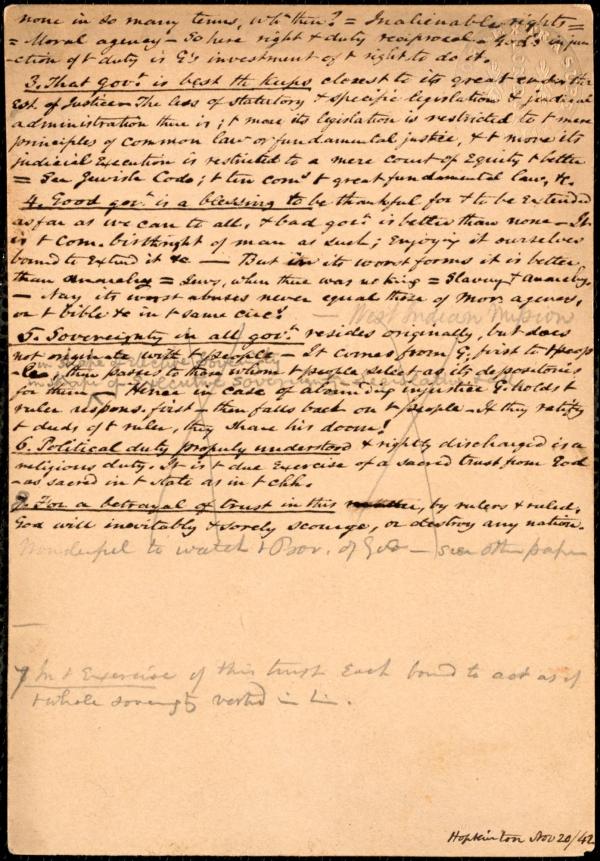 none in so many terms, wh. then? = Inalienable rights =
= Moral agency – So here right & duty reciprocal – God's injun-
ction of t duty is G's investment of t right to do it.
3. That gov.t is best th keeps closest to its great end – the
Est. of Justice – The less of statutory & specific legislation & judicial
administration there is; t more its legislation is restricted to t mere
principles of common law or fundamental justice, & t more its
judicial Execution is restricted to a mere court of Equity t better
= See Jewish Code; t ten com.s t great fundamental law, &c.
4. Good gov.t is a blessing to be thankful for & to be Extended
as far as we can to all, & bad gov.t is better than none – It
is t com. birthright of man as such; Enjoying it ourselves
bound to Extend it &c – But in its worst forms it is better
than anarchy = Jews, when there was no king = Slavery & anarchy,
– Nay its worst abuses never equal those of mor. agency,
or t bible &c in t same circ.s
– West Indian Mission
5. Sovereignty in all gov.t resides originally, but does
not originate with t people – It comes from G. first to t peop
in shape of executive sovereignty
– le – then passes to them whom t people select as its depositories
for them – Hence in case of abounding injustice G. holds t
ruler respons. first – then falls back on t people – If they ratify
t deeds of t ruler, they share his doom!
6. Political duty properly understood & rightly discharged is a
religious duty. It is t due Exercise of a sacred trust from God
– as sacred in t state as in t chh.
7. For a betrayal of trust in this matter, by rulers & ruled,
God will inevitably & sorely scourge, or destroy any nation.
Wonderful to watch t Prov. of God – see other paper
7 In t Exercise of this trust Each bound to act as if
t whole sovereignty vested in him.
Hopkinton Nov 20/42